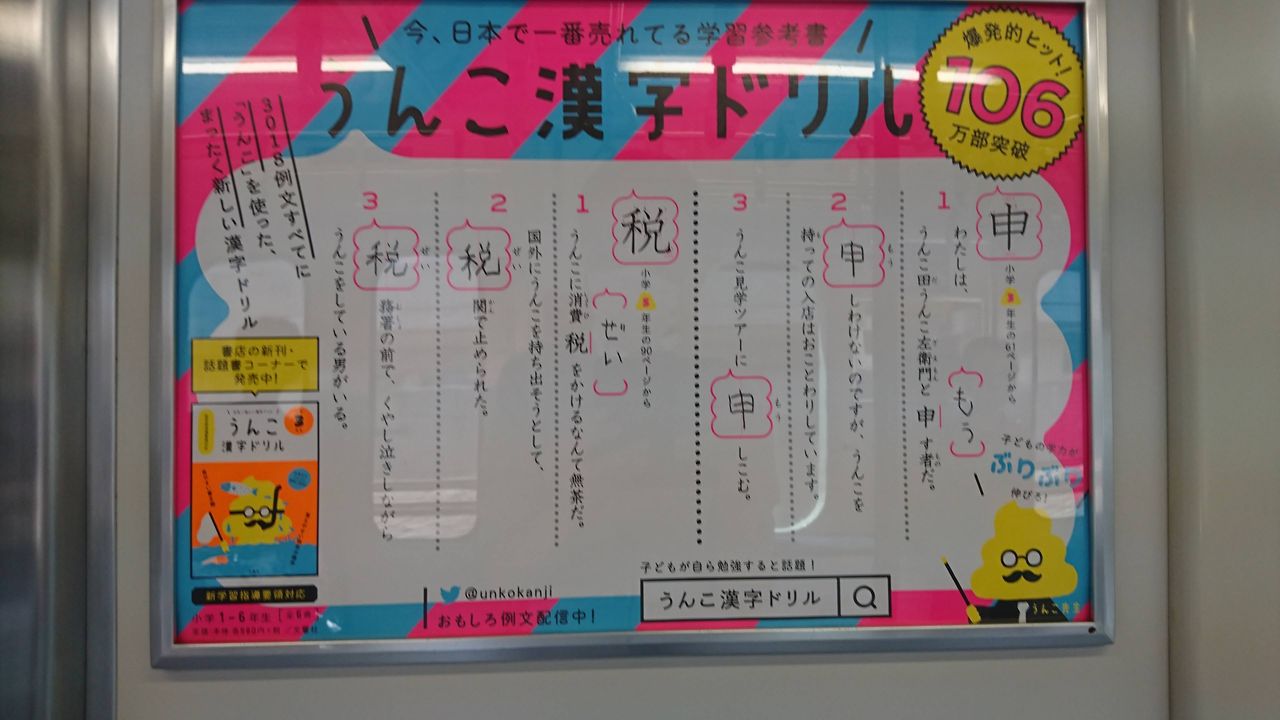 今、日本で一番売れてる学習参考書
うんこ漢字ドリル
爆発的ヒット!
106
万部突破
3018例文すべてに
「うんこ」を使った、
まったく新しい漢字ドリル
申
小学3年生の61ページから
1
わたしは、
うんこ田うんこ左衛門と申す者だ。
もう
2
申しわけないのですが、うんこを
もう
持っての入店はおことわりしています。
3
うんこ見学ツアーに申しこむ。
もう
税
小学5年生の90ページから
1
うんこに消費税をかけるなんて無茶だ。
ぜい
2
国外にうんこを持ち出そうとして、
税関で止められた。
ぜい
3
税務署の前で、くやし泣きしながら
ぜい
うんこをしている男がいる。
書店の新刊・
話題書コーナーで
発売中!
うんこ
漢字ドリル
3
新学習指導要領対応
小学1-6年生[全6冊]
@unkokanji
おもしろ例文配信中!
子どもが自ら勉強すると話題!
うんこ漢字ドリル
子どもの実力が
ぶりぶり
伸びる!
うんこ先生